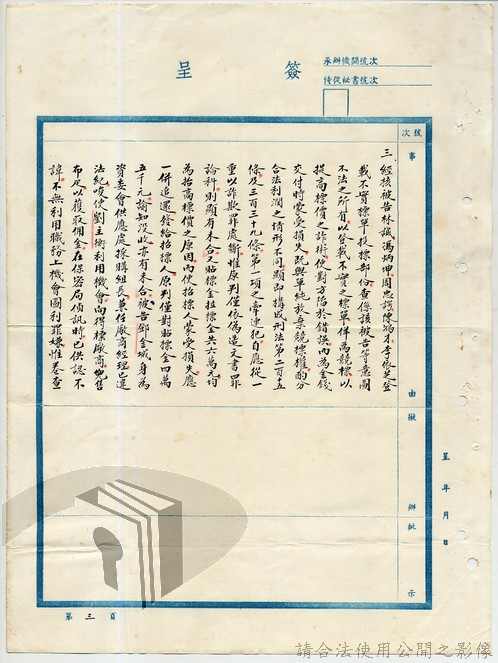 簽呈
承辦機關號次
侍從秘書號次
號次
事由
擬辦
批示
三、經核被告林誠馮炳坤周忠謨陳炳才李依芝登
載不實標單投標部份查係該被告等意圖
不法之所有以登載不實之標單佯為競標以
提高標價之詐術使對方陷於錯誤而為金錢
交付時蒙受損失既與單純放棄競標權酌分
合法利潤之情形不同顯即構成刑法第二百十五
條及三百三十九條第一項之牽連犯自應從一
重以詐欺罪處斷惟原判僅依偽造文書罪
論科則顯有未合貼標金拉標金共六萬元均
為抬高標價之原因而使招標人蒙受損失應
一併追還發給招標人原判僅對貼標金四萬
五千元諭知沒收亦有未合被告鄧金城身為
資委會供應處採購組長兼任廠商經理已違
法紀唆使劉主衡利用機會向得標廠商兜售
布疋以獲取佣金在保密局偵訊時已供認不
諱不無利用職務上機會圖利罪嫌惟卷查
呈 年 月 日
第三頁
請合法使用公開之影像